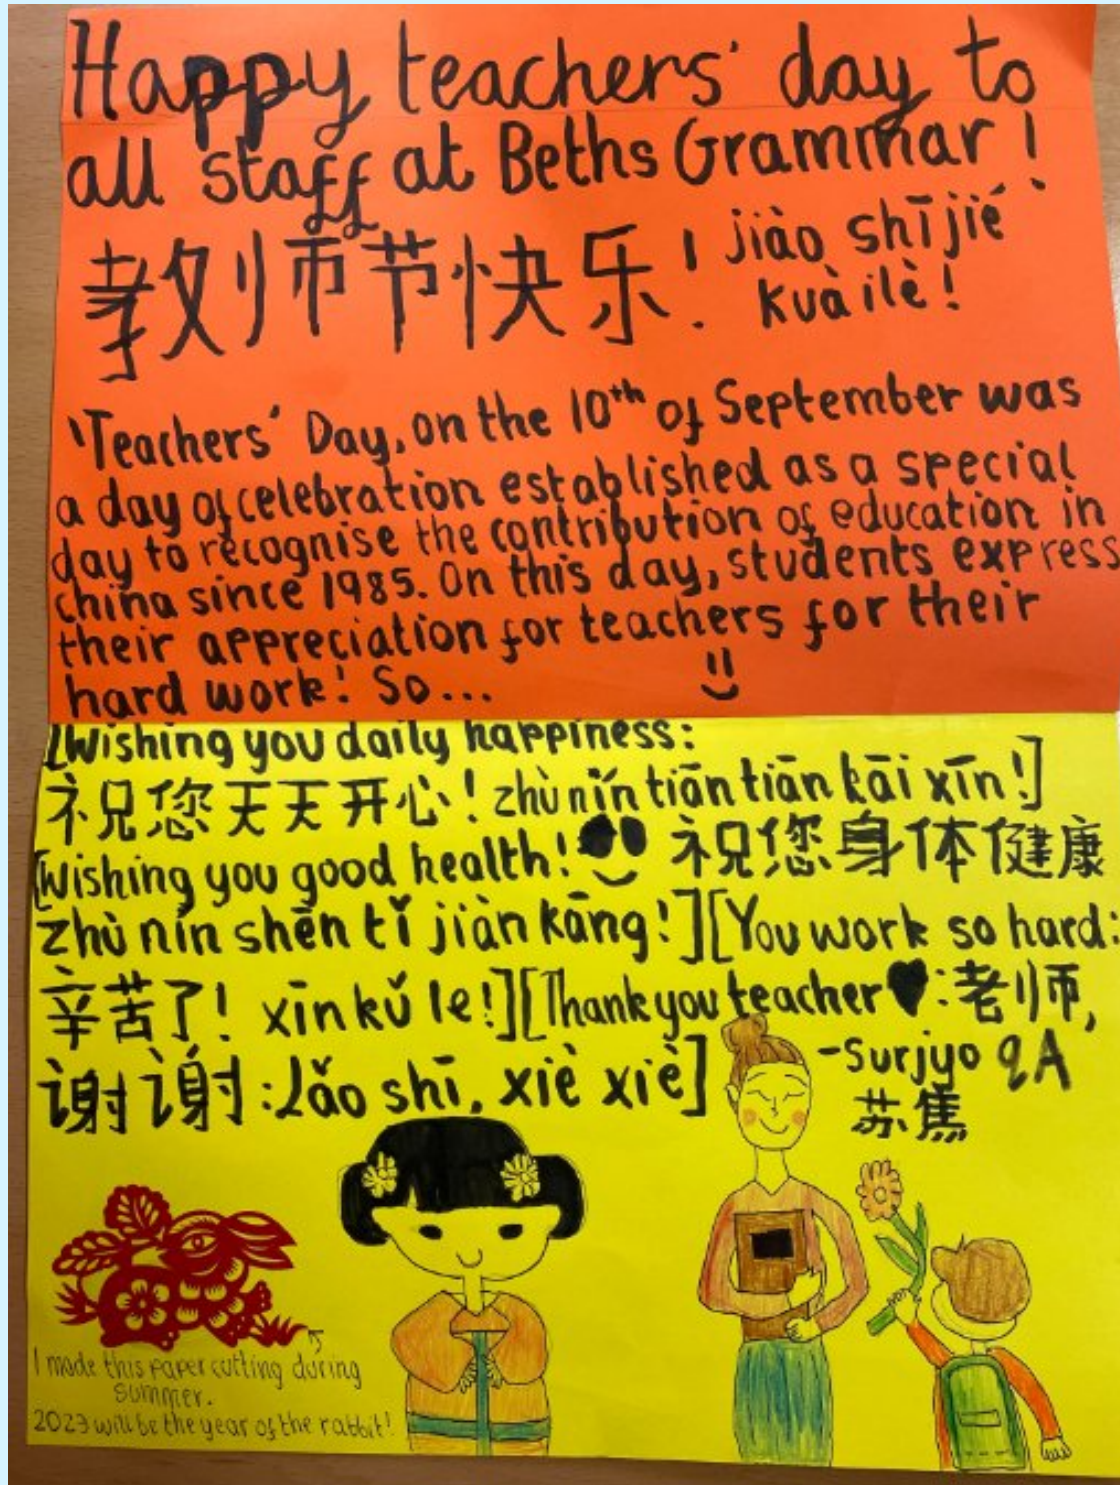 Happy teachers' day to
all staff at Beths Grammar!
教师节快乐! jiào shī jié
kuàilè!
'Teachers' Day, on the 10th of September was
a day of celebration established as a special
day to recognise the contribution of education in
china since 1985. On this day, students express
their appreciation for teachers for their
hard work! So...
[Wishing you daily happiness:
祝您天天开心! zhù nín tiān tiān kāi xīn!]
[Wishing you good health! 祝您身体健康
zhù nín shēn tǐ jiàn kāng!] [You work so hard:
辛苦了! xīn kǔ le!] [Thank you teacher♥:老师,
谢谢:Lǎo shī, xiè xiè]
-Surjyo 9A
苏焦
I made this paper cutting during
summer.
2023 will be the year of the rabbit!